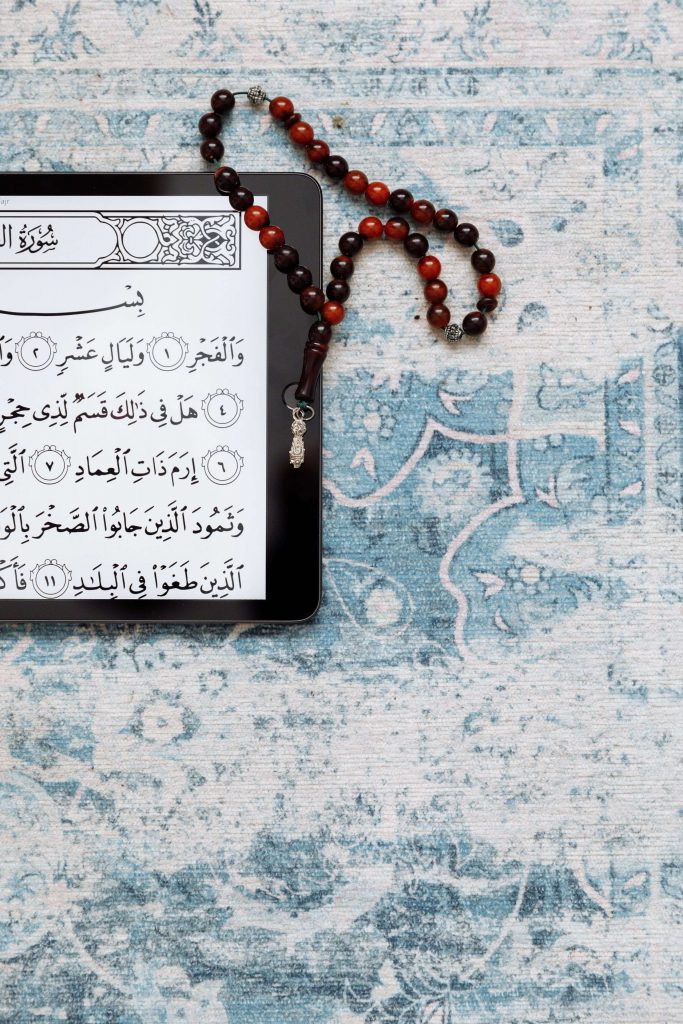 ajr
سُورَةُ ال
بِسْ
وَالْفَجْرِ ١ وَلَيَالٍ عَشْرٍ ٢ وَال
٤ هَلْ فِي ذَٰلِكَ قَسَمٌ لِّذِي حِجْرٍ
٦ إِرَمَ ذَاتِ الْعِمَادِ ٧ الَّتِي
وَثَمُودَ الَّذِينَ جَابُوا الصَّخْرَ بِالْوَ
الَّذِينَ طَغَوْا فِي الْبِلَادِ ١١ فَأَكْ